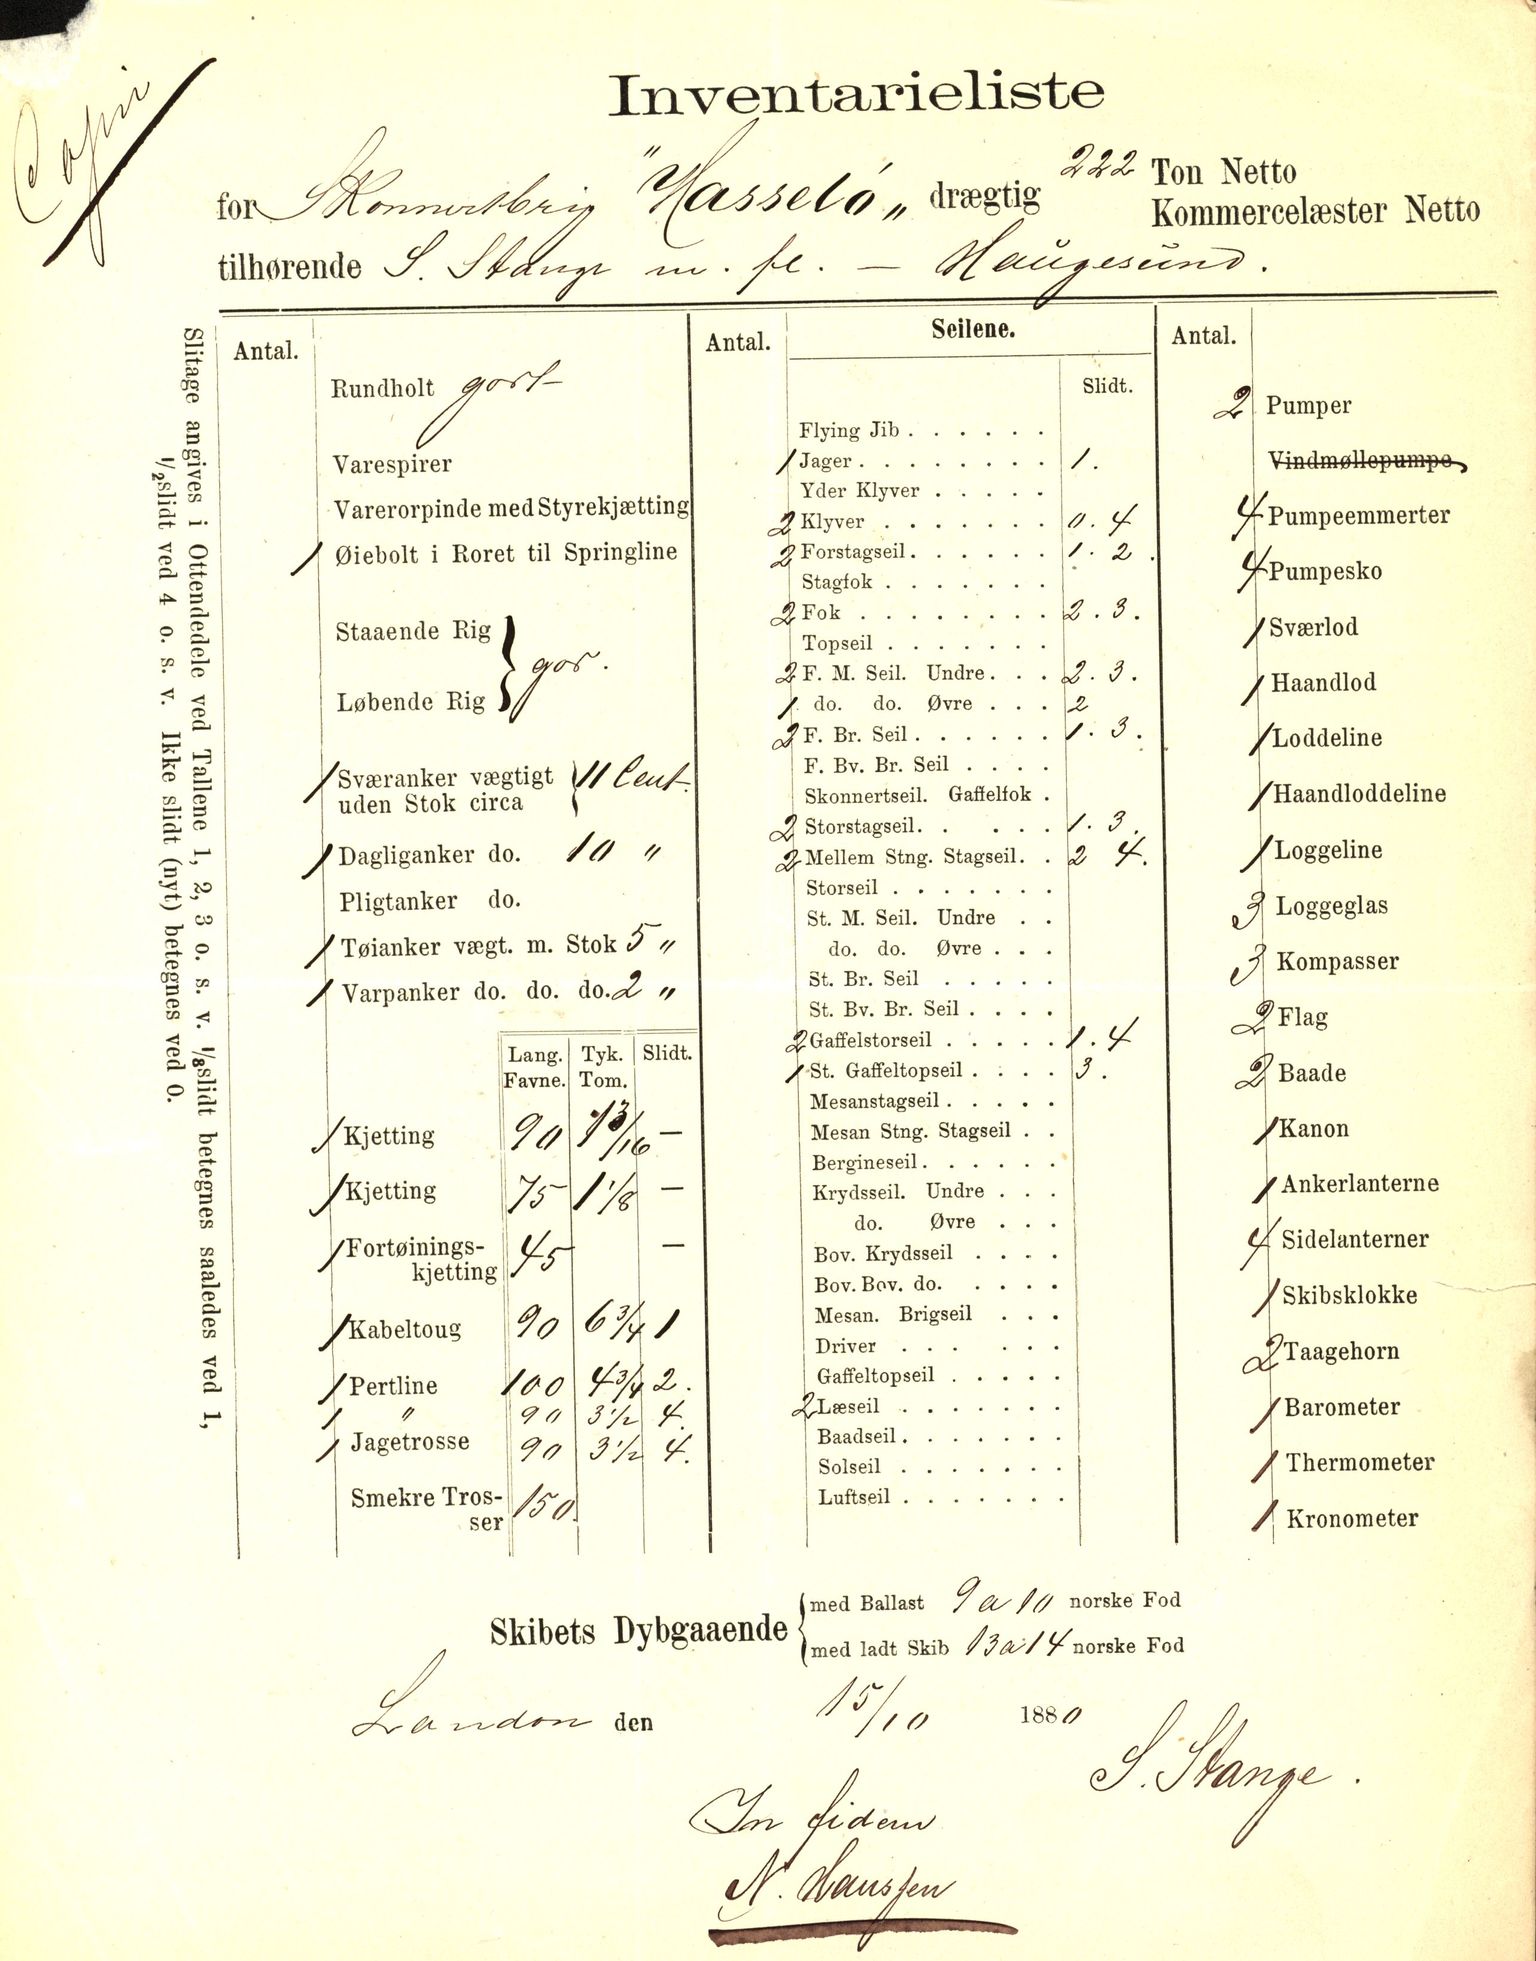 Copi
Inventarieliste
for Skonnertbrig "Hasselö„ drægtig 222 Ton Netto
Kommercelæster Netto
tilhørende S. Stange m. fl. — Haugesund.
Slitage angives i Ottendedele ved Tallene 1, 2, 3 o. s. v. 1/8 slidt betegnes saaledes ved 1,
1/2 slidt ved 4 o. s. v. Ikke slidt (nyt) betegnes ved 0.
Antal.
Rundholt godt
Varespirer
Varerorpinde med Styrekjætting
1 Øiebolt i Roret til Springline
Staaende Rig } god.
Løbende Rig
1 Sværanker vægtigt { 11 Cent.
uden Stok circa
1 Dagliganker do. 10 "
Pligtanker do.
1 Tøianker vægt. m. Stok 5 "
1 Varpanker do. do. do. 2 "
Lang. Tyk. Slidt.
Favne. Tom.
1 Kjetting 90 1 3/16 —
1 Kjetting 75 1 1/8 —
1 Fortøinings- 45 —
kjetting
1 Kabeltoug 90 6 3/4 1
1 Pertline 100 4 3/4 2.
1 " 90 3 1/2 4.
1 Jagetrosse 90 3 1/2 4.
Smekre Tros- 150.
ser
Antal. Seilene.
Slidt.
Flying Jib . . . . . .
1 Jager . . . . . . . . 1.
Yder Klyver . . . . .
2 Klyver . . . . . . . 0. 4
2 Forstagseil . . . . . . 1. 2.
Stagfok . . . . . . .
2 Fok . . . . . . . . 2. 3.
Topseil . . . . . . .
2 F. M. Seil. Undre . . . 2. 3.
1 do. do. Øvre . . . 2
2 F. Br. Seil . . . . . . 1. 3.
F. Bv. Br. Seil . . . .
Skonnertseil. Gaffelfok .
2 Storstagseil. . . . . 1. 3.
2 Mellem Stng. Stagseil. . 2 4.
Storseil . . . . . . .
St. M. Seil. Undre . .
do. do. Øvre . . .
St. Br. Seil . . . . .
St. Bv. Br. Seil . . . .
2 Gaffelstorseil . . . . . 1. 4
1 St. Gaffeltopseil . . . . 3.
Mesanstagseil . . . . .
Mesan Stng. Stagseil . .
Bergineseil . . . . . .
Krydsseil. Undre . . .
do. Øvre . . .
Bov. Krydsseil . . . .
Bov. Bov. do. . . . .
Mesan. Brigseil . . .
Driver . . . . . .
Gaffeltopseil . . . . .
2 Læseil . . . . . . .
Baadseil . . . . . . .
Solseil . . . . . . .
Luftseil . . . . . . .
Antal.
2 Pumper
Vindmøllepumpe
4 Pumpeemmerter
4 Pumpesko
1 Sværlod
1 Haandlod
1 Loddeline
1 Haandloddeline
1 Loggeline
3 Loggeglas
3 Kompasser
2 Flag
2 Baade
1 Kanon
1 Ankerlanterne
4 Sidelanterner
1 Skibsklokke
2 Taagehorn
1 Barometer
1 Thermometer
1 Kronometer
Skibets Dybgaaende { med Ballast 9 a 10 norske Fod
med ladt Skib 13 a 14 norske Fod
London den 15/10 1880
S. Stange.
In fidem
N. Hanssen